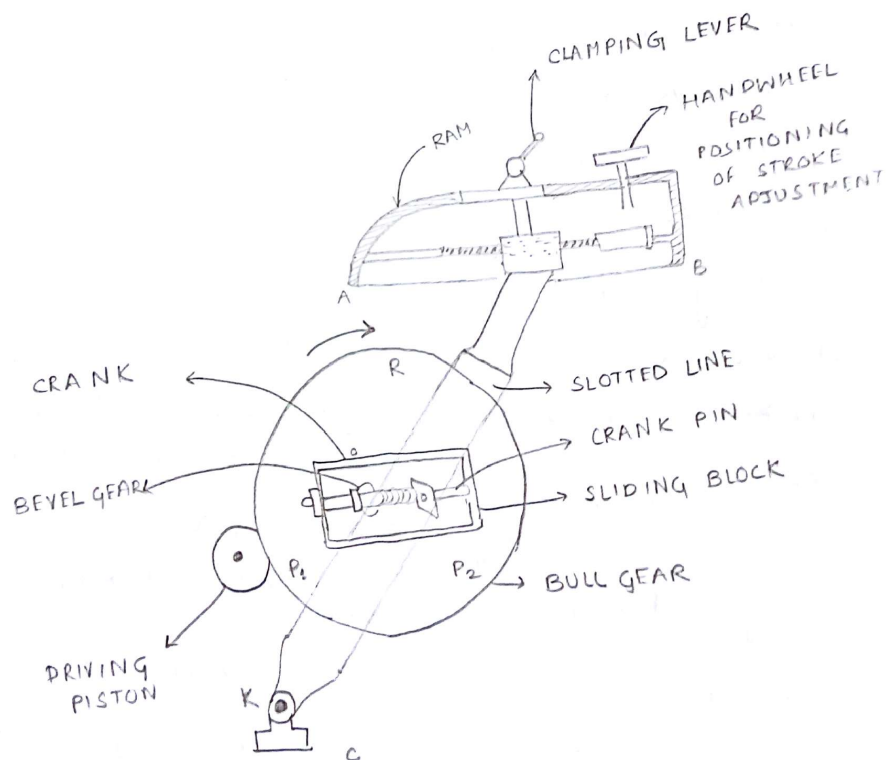 CLAMPING LEVER
HANDWHEEL
FOR
POSITIONING
OF STROKE
ADJUSTMENT
RAM
A
B
R
CRANK
SLOTTED LINE
CRANK PIN
BEVEL GEAR
SLIDING BLOCK
P1
P2
BULL GEAR
DRIVING
PISTON
K
C